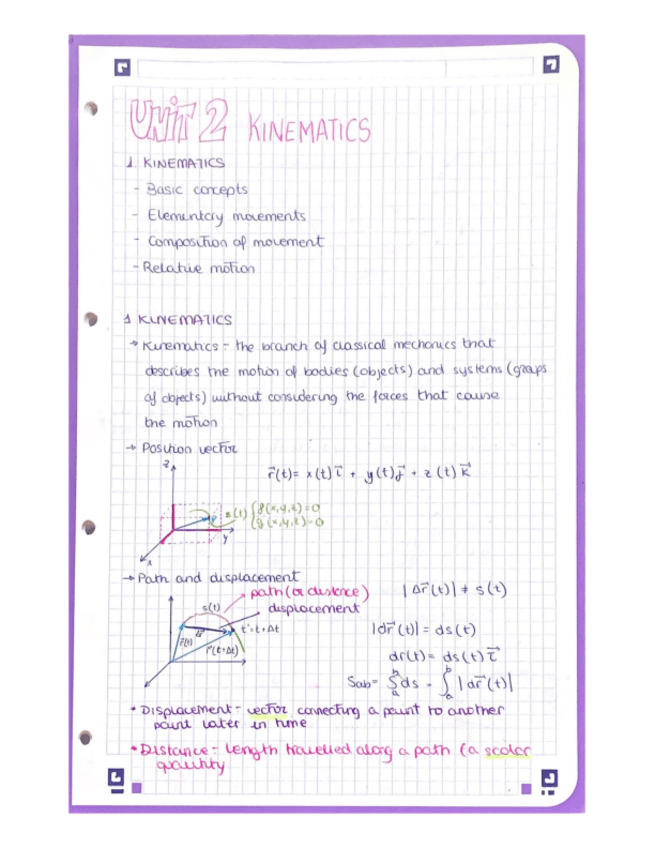 UNIT 2 KINEMATICS
1. KINEMATICS
- Basic concepts
- Elementary movements
- Composition of movement
- Relative motion
1 KINEMATICS
* Kinematics - the branch of classical mechanics that
describes the motion of bodies (objects) and systems (groups
of objects) without considering the forces that cause
the motion
→ Position vector
z
r⃗(t) = x(t)i⃗ + y(t)j⃗ + z(t)k⃗
s(t) { f(x,y,z)=0
g(x,y,z)=0
y
x
→ Path and displacement
path (or distance)
|Δr⃗(t)| ≠ s(t)
s(t)
displacement
Δr⃗
t'=t+Δt
|dr⃗(t)| = ds(t)
r⃗(t)
r⃗(t+Δt)
dr(t) = ds(t) τ⃗
Sab = ∫ₐᵇ ds = ∫ₐᵇ |dr⃗(t)|
* Displacement - vector connecting a point to another
point later in time
* Distance - length travelled along a path (a scalar
quantity